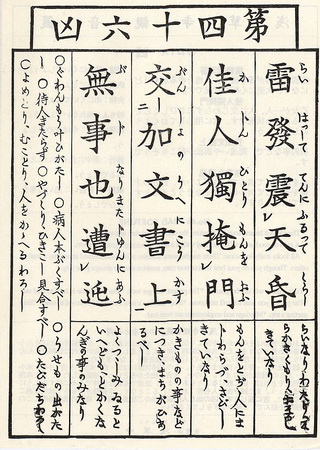 第四十六凶
雷發震天昏
らい はつて てんに ふるつて くらし
らいなりわたりて
きていなり
佳人獨掩門
か じん ひとり もんを おほふ
もんをとぢ人にま
じわらづ、さびし
きていなり
交加文書上
ぶん しよ の うへに こう かす
かきものの事など
につき、まちがひあ
るべし
無事也遭迍
ぶ じ なりまた ちゆんにあふ
よくつゝしみゐると
いへども、とかくな
んぎの事のみなり
○ぐわんもう叶ひがたし ○病人本ぶくすべし ○うせもの出がた
し ○待人きたらず ○やづくり、ひきこし見合すべし ○たびだちわろし
○よめとり、むことり、人をかゝへるわろし